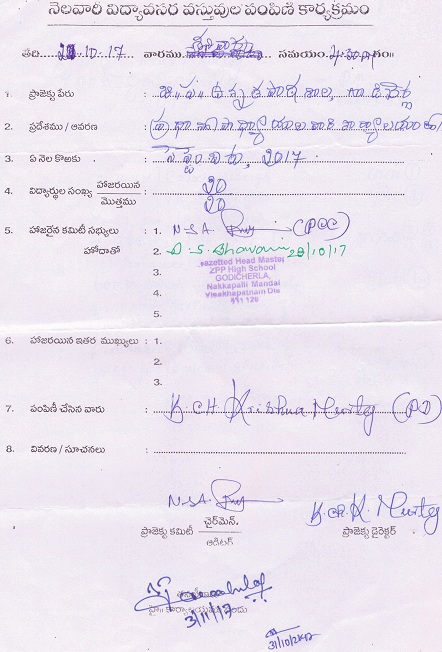 నెలవారీ విద్యావసర వస్తువుల పంపిణి కార్యక్రమం
తేది 28-10-17 వారము శనివారం సమయం
1. ప్రాజెక్టు పేరు : జి.ప. ఉన్నత పాఠశాల, గొడిచెర్ల
2. ప్రదేశము / ఆవరణ : ప్రధానోపాధ్యాయుల వారి కార్యాలయం
3. ఏ నెల కొఱకు : సెప్టెంబరు, 2017
4. విద్యార్థుల సంఖ్య హాజరయిన : 20
మొత్తము 20
5. హాజరైన కమిటీ సభ్యులు : 1. N.S.A. (PCC)
హోదాతో 2. D.S. Bhavani 28/10/17
3.
4.
5.
Gazetted Head Master
ZPP High School
GODICHERLA,
Nakkapalli Mandal
Visakhapatnam Dis
6. హాజరయిన ఇతర ముఖ్యులు : 1.
2.
3.
7. పంపిణీ చేసిన వారు : K.CH. Krishna Murty (PD)
8. వివరణ / సూచనలు :
N.S.A.
K.CH.K. Murty
ప్రాజెక్టు కమిటీ ఛైర్‌మెన్
ఆడిటర్
ప్రాజెక్టు డైరెక్టర్
3/11/17
31/10/2017